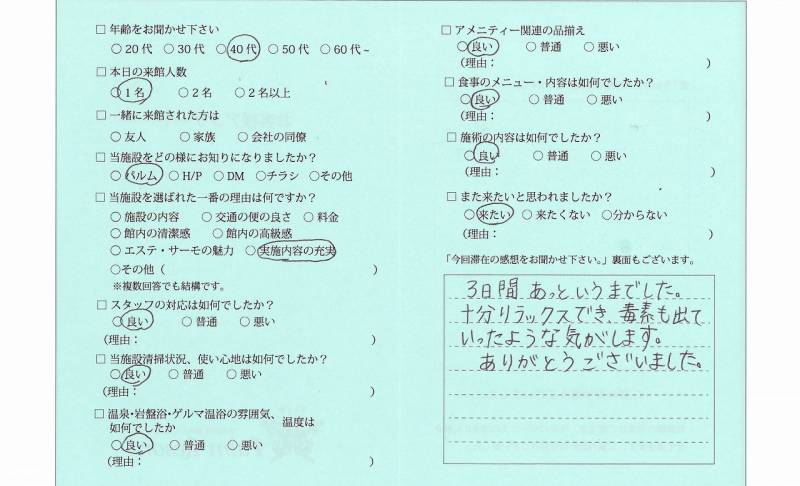 □ 年齢をお聞かせ下さい
○ 20 代 ○ 30 代 ○ 40 代 ○ 50 代 ○ 60 代 ~
□ 本日の来館人数
○ 1 名 ○ 2 名 ○ 2 名以上
□ 一緒に来館された方は
○ 友人 ○ 家族 ○ 会社の同僚
□ 当施設をどの様にお知りになりましたか？
○ パルム ○ H/P ○ DM ○チラシ ○その他
□ 当施設を選ばれた一番の理由は何ですか？
○ 施設の内容 ○ 交通の便の良さ ○ 料金
○ 館内の清潔感 ○ 館内の高級感
○ エステ・サーモの魅力 ○ 実施内容の充実
○その他（ ）
※複数回答でも結構です。
□ スタッフの対応は如何でしたか？
○ 良い ○ 普通 ○ 悪い
(理由： )
□ 当施設清掃状況、使い心地は如何でしたか？
○ 良い ○ 普通 ○ 悪い
(理由： )
□ 温泉・岩盤浴・ゲルマ温浴の雰囲気、 温度は
如何でしたか
○ 良い ○ 普通 ○ 悪い
(理由： )
□ アメニティー関連の品揃え
○ 良い ○ 普通 ○ 悪い
(理由： )
□ 食事のメニュー・内容は如何でしたか？
○ 良い ○ 普通 ○ 悪い
(理由： )
□ 施術の内容は如何でしたか？
○ 良い ○ 普通 ○ 悪い
(理由： )
□ また来たいと思われましたか？
○ 来たい ○ 来たくない ○分からない
(理由： )
「今回滞在の感想をお聞かせ下さい。」裏面もございます。
3日間 あっというまでした。
十分リラックスでき、毒素も出て
いったような気がします。
ありがとうございました。